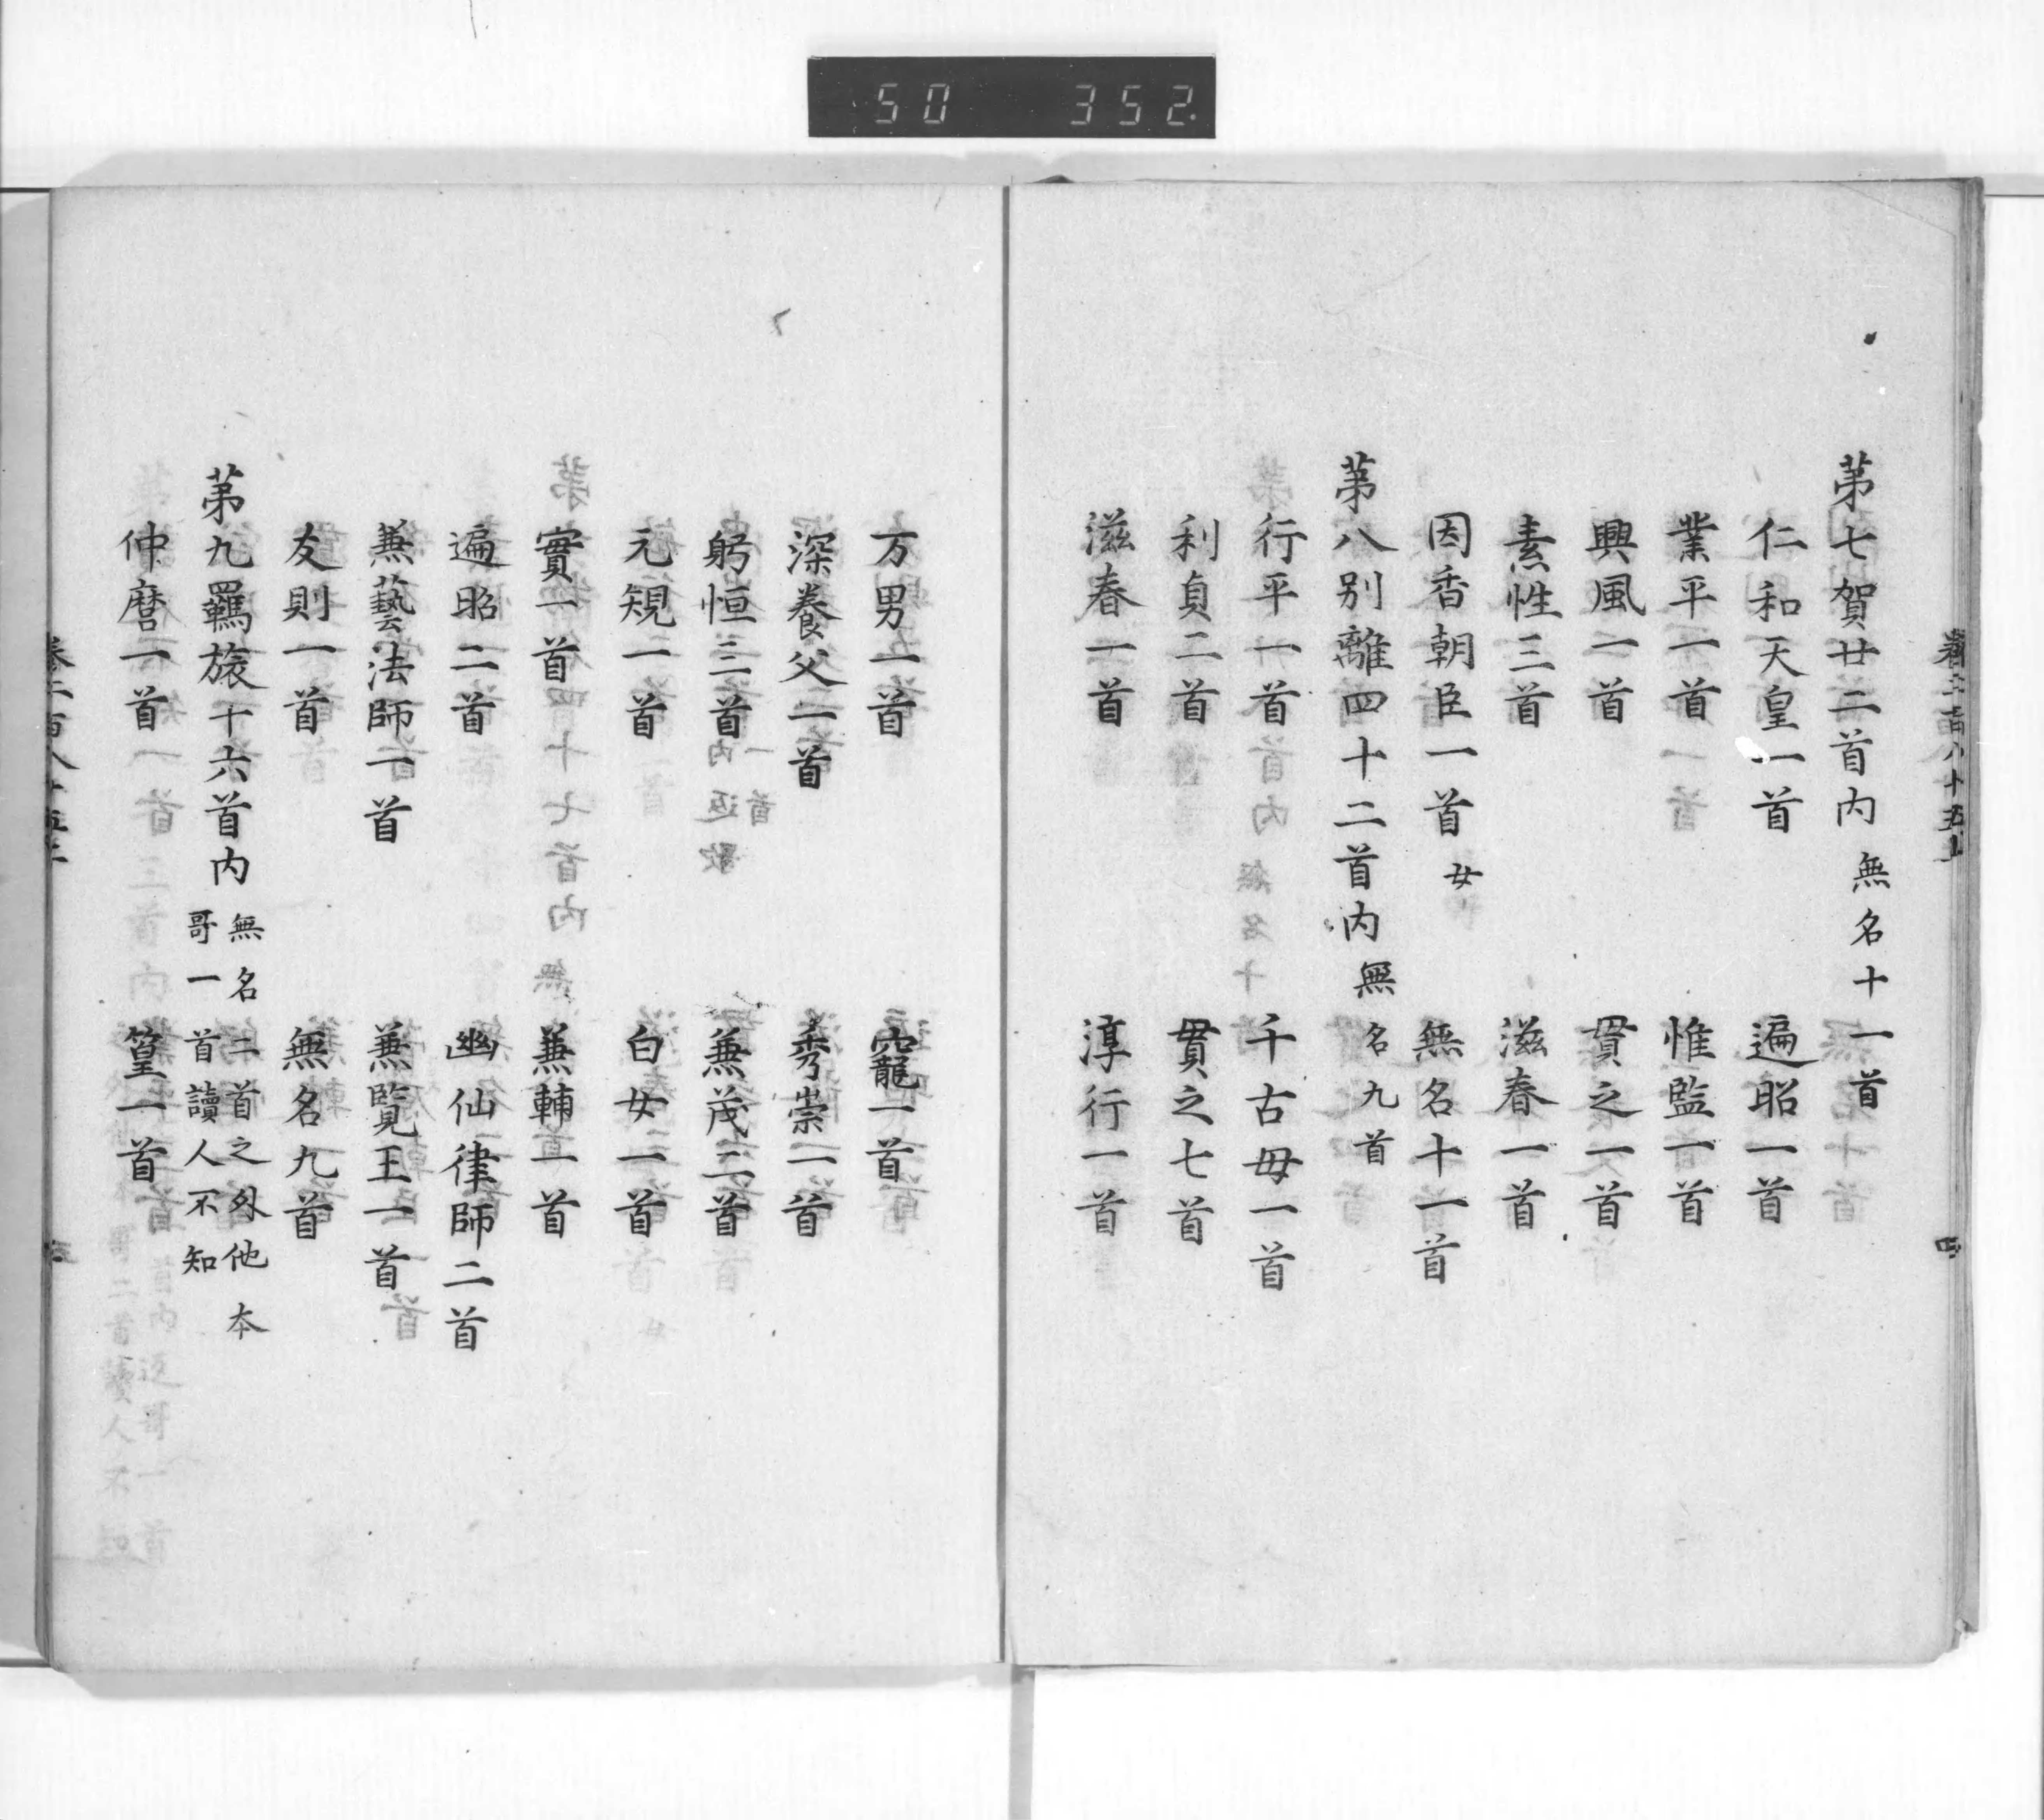 50 352
第七賀廿二首内 無名十一首
仁和天皇一首 遍昭一首
業平一首 惟監一首
興風一首 貫之一首
素性三首 滋春一首
因香朝臣一首 女 無名十一首
第八別離四十二首内 無名九首
行平一首 千古毋一首
利貞二首 貫之七首
滋春一首 淳行一首
万男一首 寵一首
深養父一首 秀崇一首
躬恒三首 兼茂二首
元規一首 白女一首
實一首 兼輔一首
遍昭二首 幽仙律師二首
兼藝法師一首 兼覽王一首
友則一首 無名九首
第九羈旅十六首内 無名二首之外他本
哥一首讀人不知
仲麿一首 篁一首